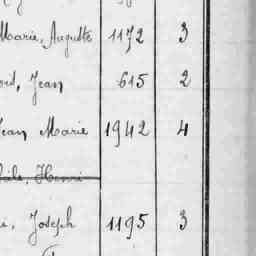 Marie, Augustte 1172 3
Jean 615 2
Jean Marie 1942 4
Henri
Joseph 1195 3